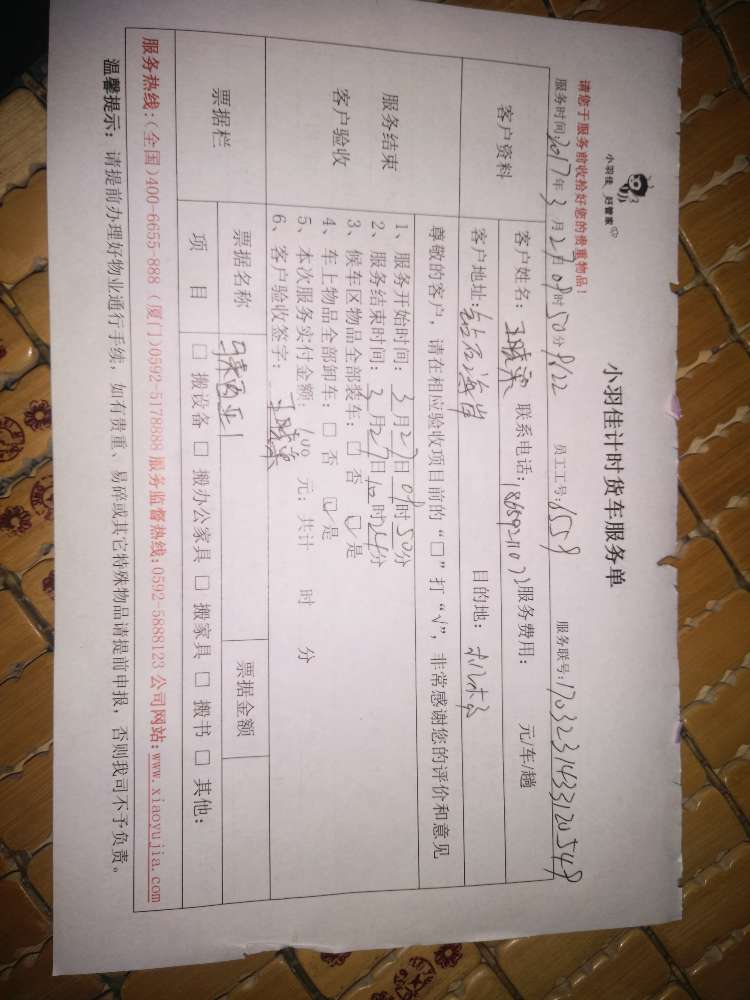 小羽佳 好管家
小羽佳计时货车服务单
请您于服务前收拾好您的贵重物品！
服务时间：2017年3月27日09时50分 员工工号：1559 服务联号：17032314331205549
客户资料
客户姓名： 联系电话： 服务费用： 元/车/趟
客户地址：钻石海岸 目的地：
服务结束
客户验收
尊敬的客户，请在相应验收项目前的“□”打“√”，非常感谢您的评价和意见
1、服务开始时间：3月27日09时50分
2、服务结束时间：3月27日10时24分
3、候车区物品全部装车：□否 ☑是
4、车上物品全部卸车：□否 ☑是
5、本次服务实付金额：100元；共计 时 分
6、客户验收签字：
票据栏
票据名称 票据金额
项 目 □搬设备 □搬办公家具 □搬家具 □搬书 □其他：
服务热线：（全国）400-6655-888（厦门）0592-5178888 服务监督热线：0592-5888123 公司网站：www.xiaoyujia.com
温馨提示：请提前办理好物业通行手续，如有贵重、易碎或其它特殊物品请提前申报，否则我司不予负责。